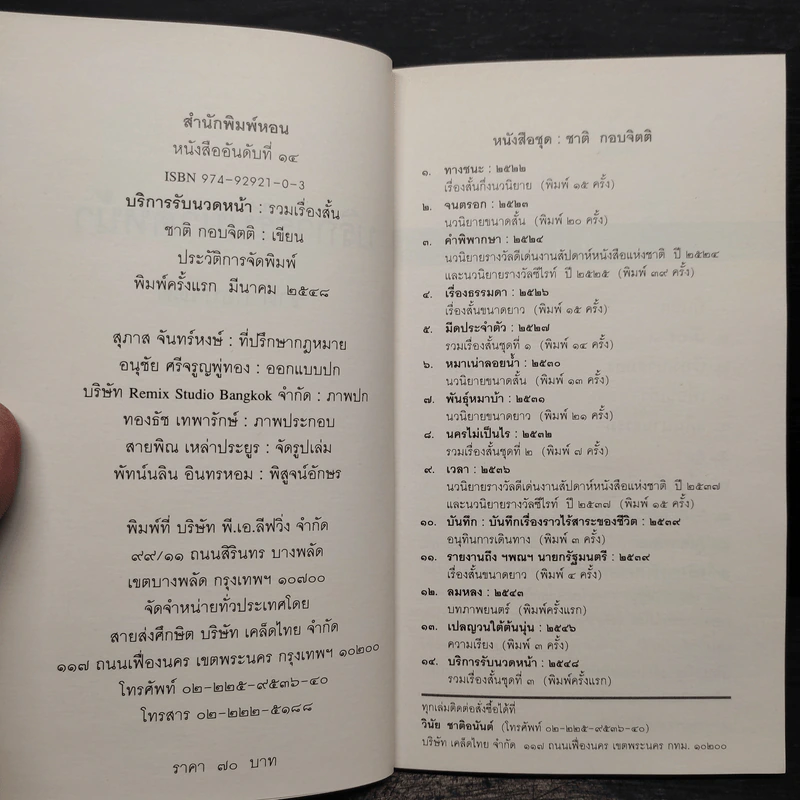 สำนักพิมพ์หอน
หนังสืออันดับที่ ๑๔
ISBN 974-92921-0-3
บริการรับนวดหน้า : รวมเรื่องสั้น
ชาติ กอบจิตติ : เขียน
ประวัติการจัดพิมพ์
พิมพ์ครั้งแรก มีนาคม ๒๕๔๘
สุภาส จันทร์หงษ์ : ที่ปรึกษากฎหมาย
อนุชัย ศรีจรูญพู่ทอง : ออกแบบปก
บริษัท Remix Studio Bangkok จำกัด : ภาพปก
ทองธัช เทพารักษ์ : ภาพประกอบ
สายพิณ เหล่าประยูร : จัดรูปเล่ม
พัทน์นลิน อินทรหอม : พิสูจน์อักษร
พิมพ์ที่ บริษัท พี.เอ.ลีฟวิ่ง จำกัด
๙๙/๑๑ ถนนสิรินทร บางพลัด
เขตบางพลัด กรุงเทพฯ ๑๐๗๐๐
จัดจำหน่ายทั่วประเทศโดย
สายส่งศึกษิต บริษัท เคล็ดไทย จำกัด
๑๑๗ ถนนเฟื่องนคร เขตพระนคร กรุงเทพฯ ๑๐๒๐๐
โทรศัพท์ ๐๒-๒๒๕-๙๕๓๖-๔๐
โทรสาร ๐๒-๒๒๒-๕๑๘๘
ราคา ๗๐ บาท
หนังสือชุด : ชาติ กอบจิตติ
๑. ทางชนะ : ๒๕๒๒
เรื่องสั้นกึ่งนวนิยาย (พิมพ์ ๑๕ ครั้ง)
๒. จนตรอก : ๒๕๒๓
นวนิยายขนาดสั้น (พิมพ์ ๒๐ ครั้ง)
๓. คำพิพากษา : ๒๕๒๔
นวนิยายรางวัลดีเด่นงานสัปดาห์หนังสือแห่งชาติ ปี ๒๕๒๔
และนวนิยายรางวัลซีไรท์ ปี ๒๕๒๕ (พิมพ์ ๓๙ ครั้ง)
๔. เรื่องธรรมดา : ๒๕๒๖
เรื่องสั้นขนาดยาว (พิมพ์ ๑๕ ครั้ง)
๕. มีดประจำตัว : ๒๕๒๗
รวมเรื่องสั้นชุดที่ ๑ (พิมพ์ ๑๔ ครั้ง)
๖. หมาเน่าลอยน้ำ : ๒๕๓๐
นวนิยายขนาดสั้น (พิมพ์ ๑๓ ครั้ง)
๗. พันธุ์หมาบ้า : ๒๕๓๑
นวนิยายขนาดยาว (พิมพ์ ๒๑ ครั้ง)
๘. นครไม่เป็นไร : ๒๕๓๒
รวมเรื่องสั้นชุดที่ ๒ (พิมพ์ ๗ ครั้ง)
๙. เวลา : ๒๕๓๖
นวนิยายรางวัลดีเด่นงานสัปดาห์หนังสือแห่งชาติ ปี ๒๕๓๗
และนวนิยายรางวัลซีไรท์ ปี ๒๕๓๗ (พิมพ์ ๑๕ ครั้ง)
๑๐. บันทึก : บันทึกเรื่องราวไร้สาระของชีวิต : ๒๕๓๙
อนุทินการเดินทาง (พิมพ์ ๓ ครั้ง)
๑๑. รายงานถึง ฯพณฯ นายกรัฐมนตรี : ๒๕๓๙
เรื่องสั้นขนาดยาว (พิมพ์ ๔ ครั้ง)
๑๒. ลมหลง : ๒๕๔๓
บทภาพยนตร์ (พิมพ์ครั้งแรก)
๑๓. เปลญวนใต้ต้นนุ่น : ๒๕๔๖
ความเรียง (พิมพ์ ๓ ครั้ง)
๑๔. บริการรับนวดหน้า : ๒๕๔๘
รวมเรื่องสั้นชุดที่ ๓ (พิมพ์ครั้งแรก)
ทุกเล่มติดต่อสั่งซื้อได้ที่
วินัย ชาติอนันต์ (โทรศัพท์ ๐๒-๒๒๕-๙๕๓๖-๔๐)
บริษัท เคล็ดไทย จำกัด ๑๑๗ ถนนเฟื่องนคร เขตพระนคร กทม. ๑๐๒๐๐